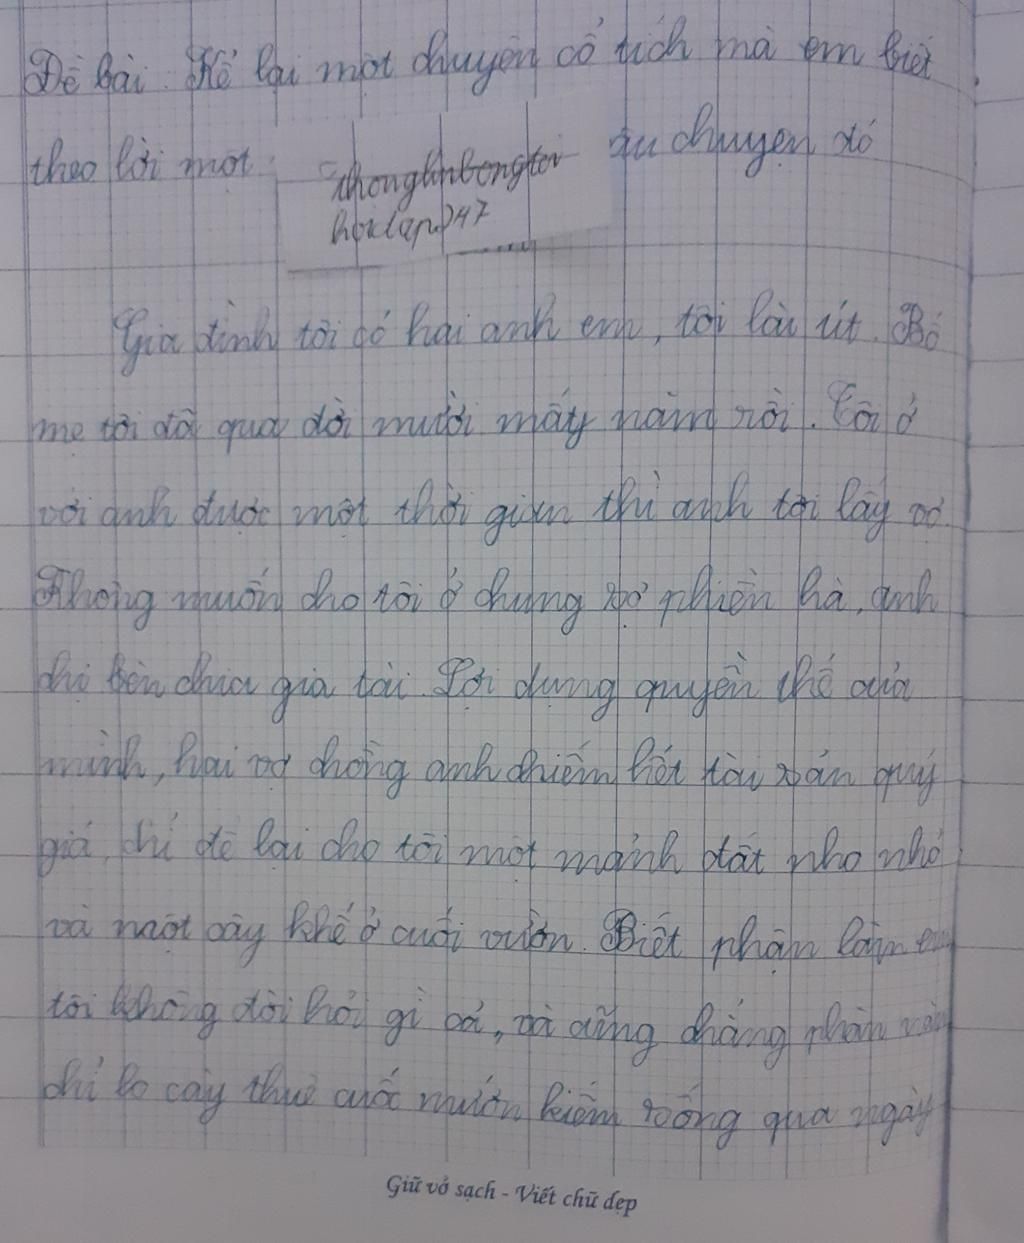 Đề bài. Kể lại một chuyện cổ tích mà em biết
theo lời một câu chuyện đó
thonglinbongtoi
hoclap247
Gia đình tôi có hai anh em, tôi là út. Bố
mẹ tôi đã qua đời mười mấy năm rồi. Tôi ở
với anh được một thời gian thì anh tôi lấy vợ.
Không muốn cho tôi ở chung sợ phiền hà, anh
chị bèn chia gia tài. Lợi dụng quyền thế của
mình, hai vợ chồng anh chiếm hết tài sản quý
giá, chỉ để lại cho tôi một mảnh đất nho nhỏ
và một cây khế ở cuối vườn. Biết phận làm em
tôi không đòi hỏi gì cả, và cũng chẳng phàn nàn
chỉ lo cày thuê cuốc mướn kiếm sống qua ngày
Giữ vở sạch - Viết chữ đẹp